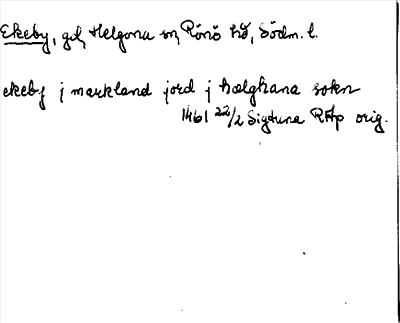 Ekeby, gd, Helgona sn, Rönö hd, Södm. l.
ekeby j markland jord j hælghana sokn
1461 22/2 Sigtuna RAp orig.